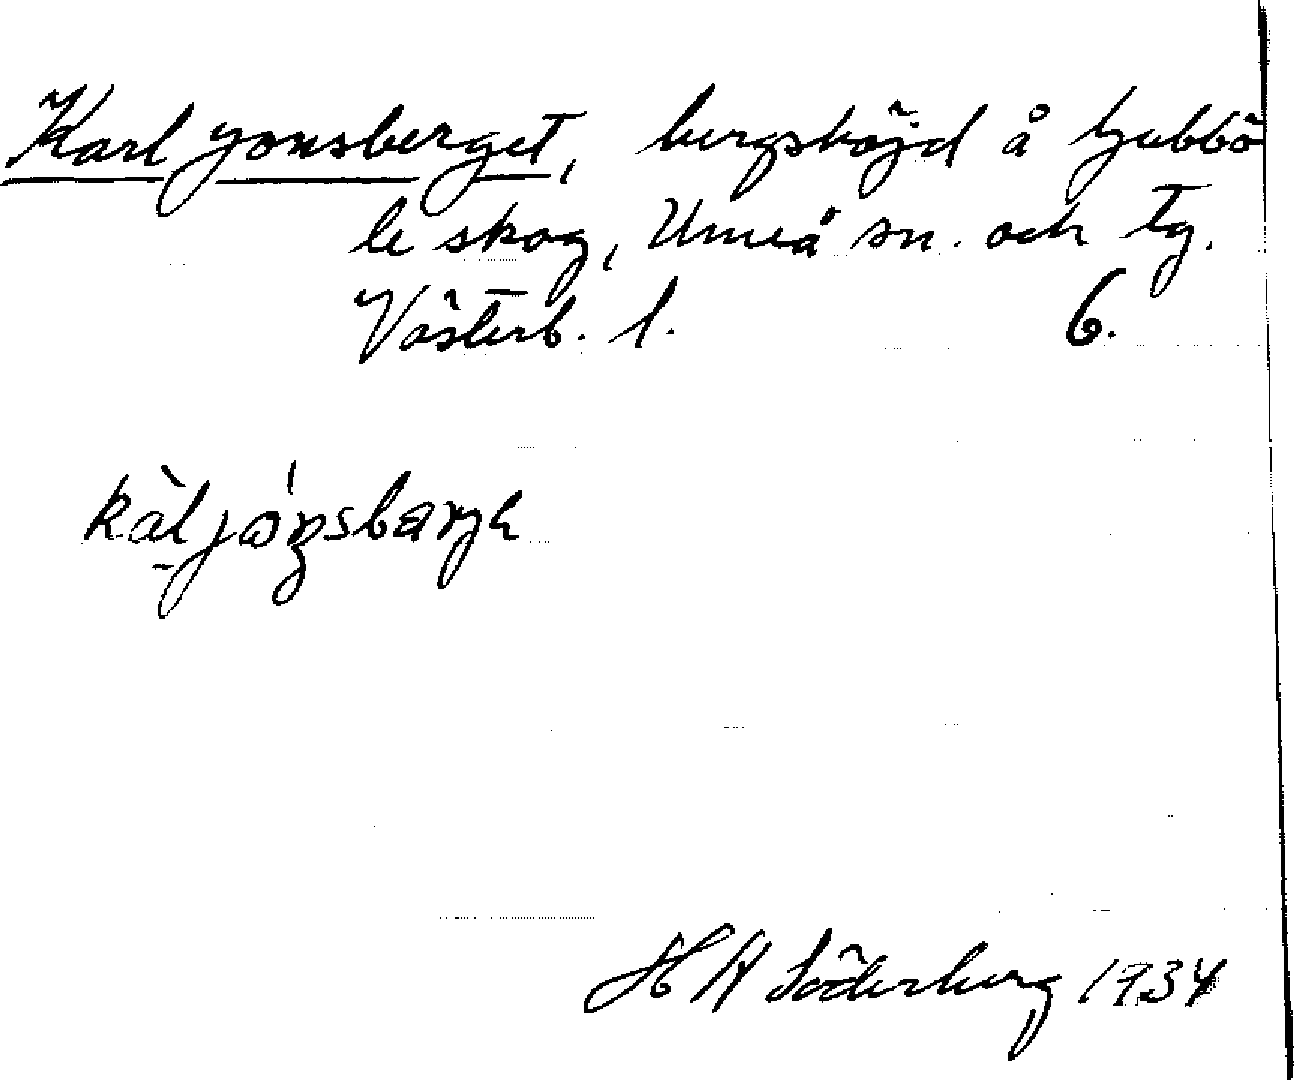 Karl Jonsberget, bergshöjd å Tjabbö
le skog, Umeå sn. och tg.
Västerb. l. 6.
H A Söderberg 1934